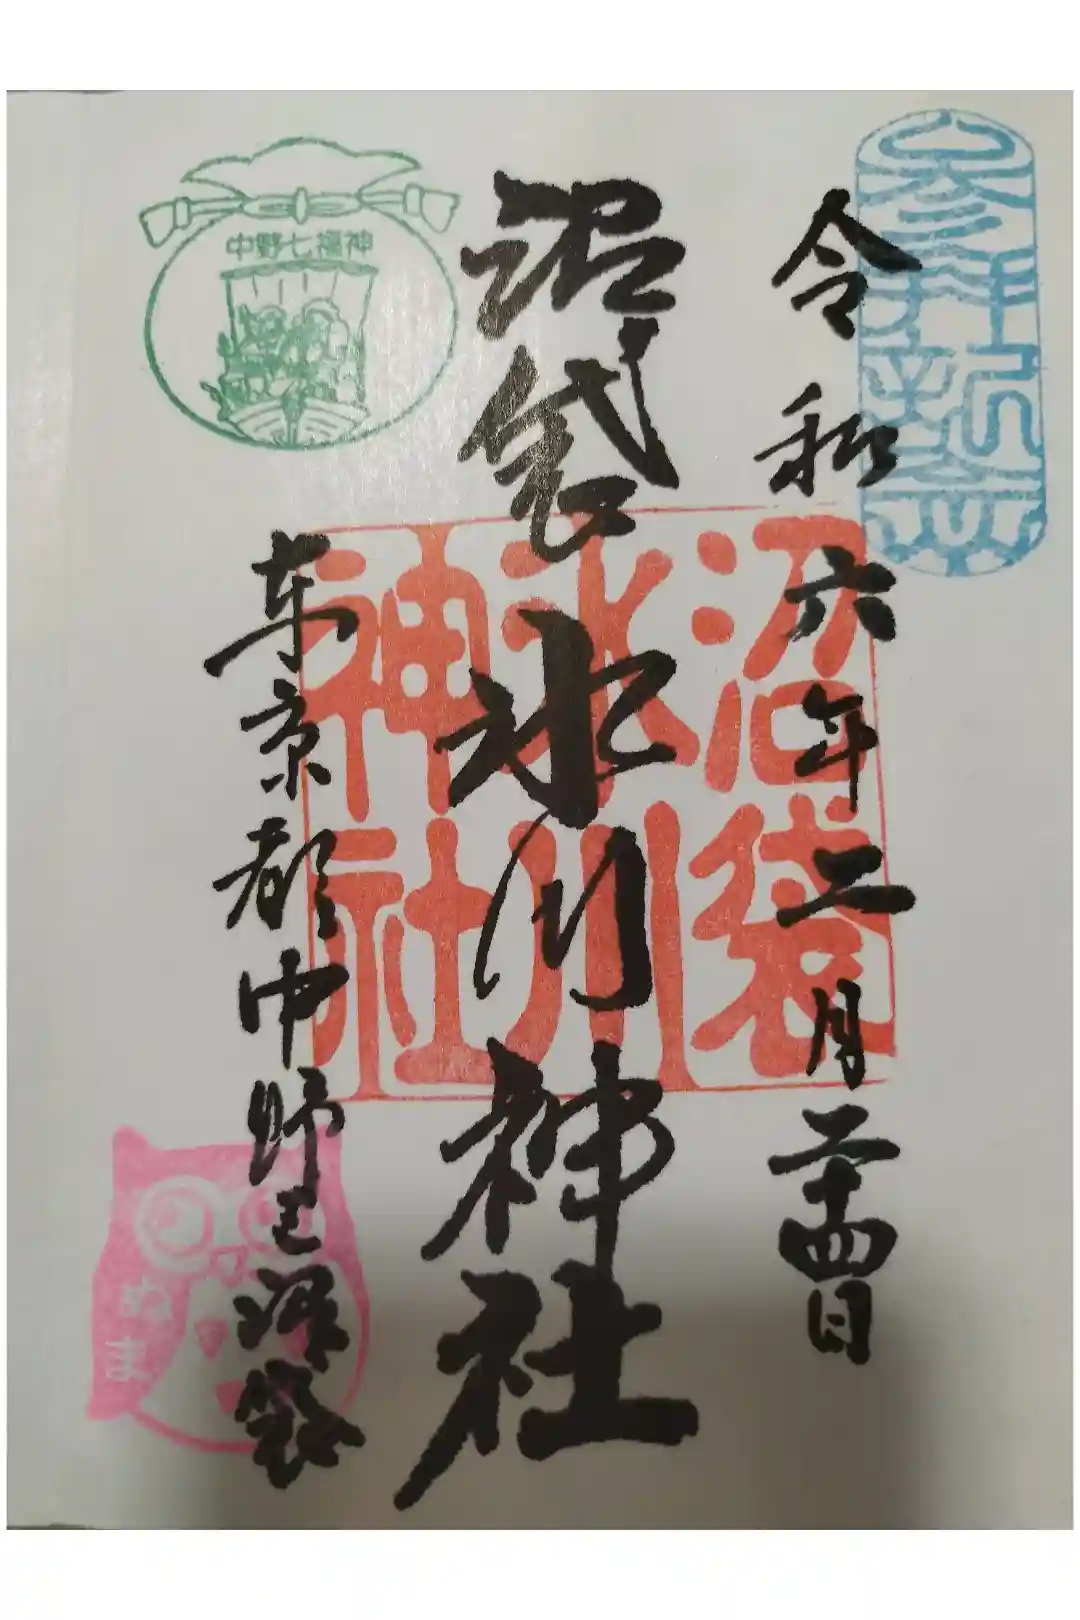 参拝祈念
令和六年二月二十四日
沼袋氷川神社
沼袋
氷川
神社
中野七福神
東京都中野区沼袋
ぬま